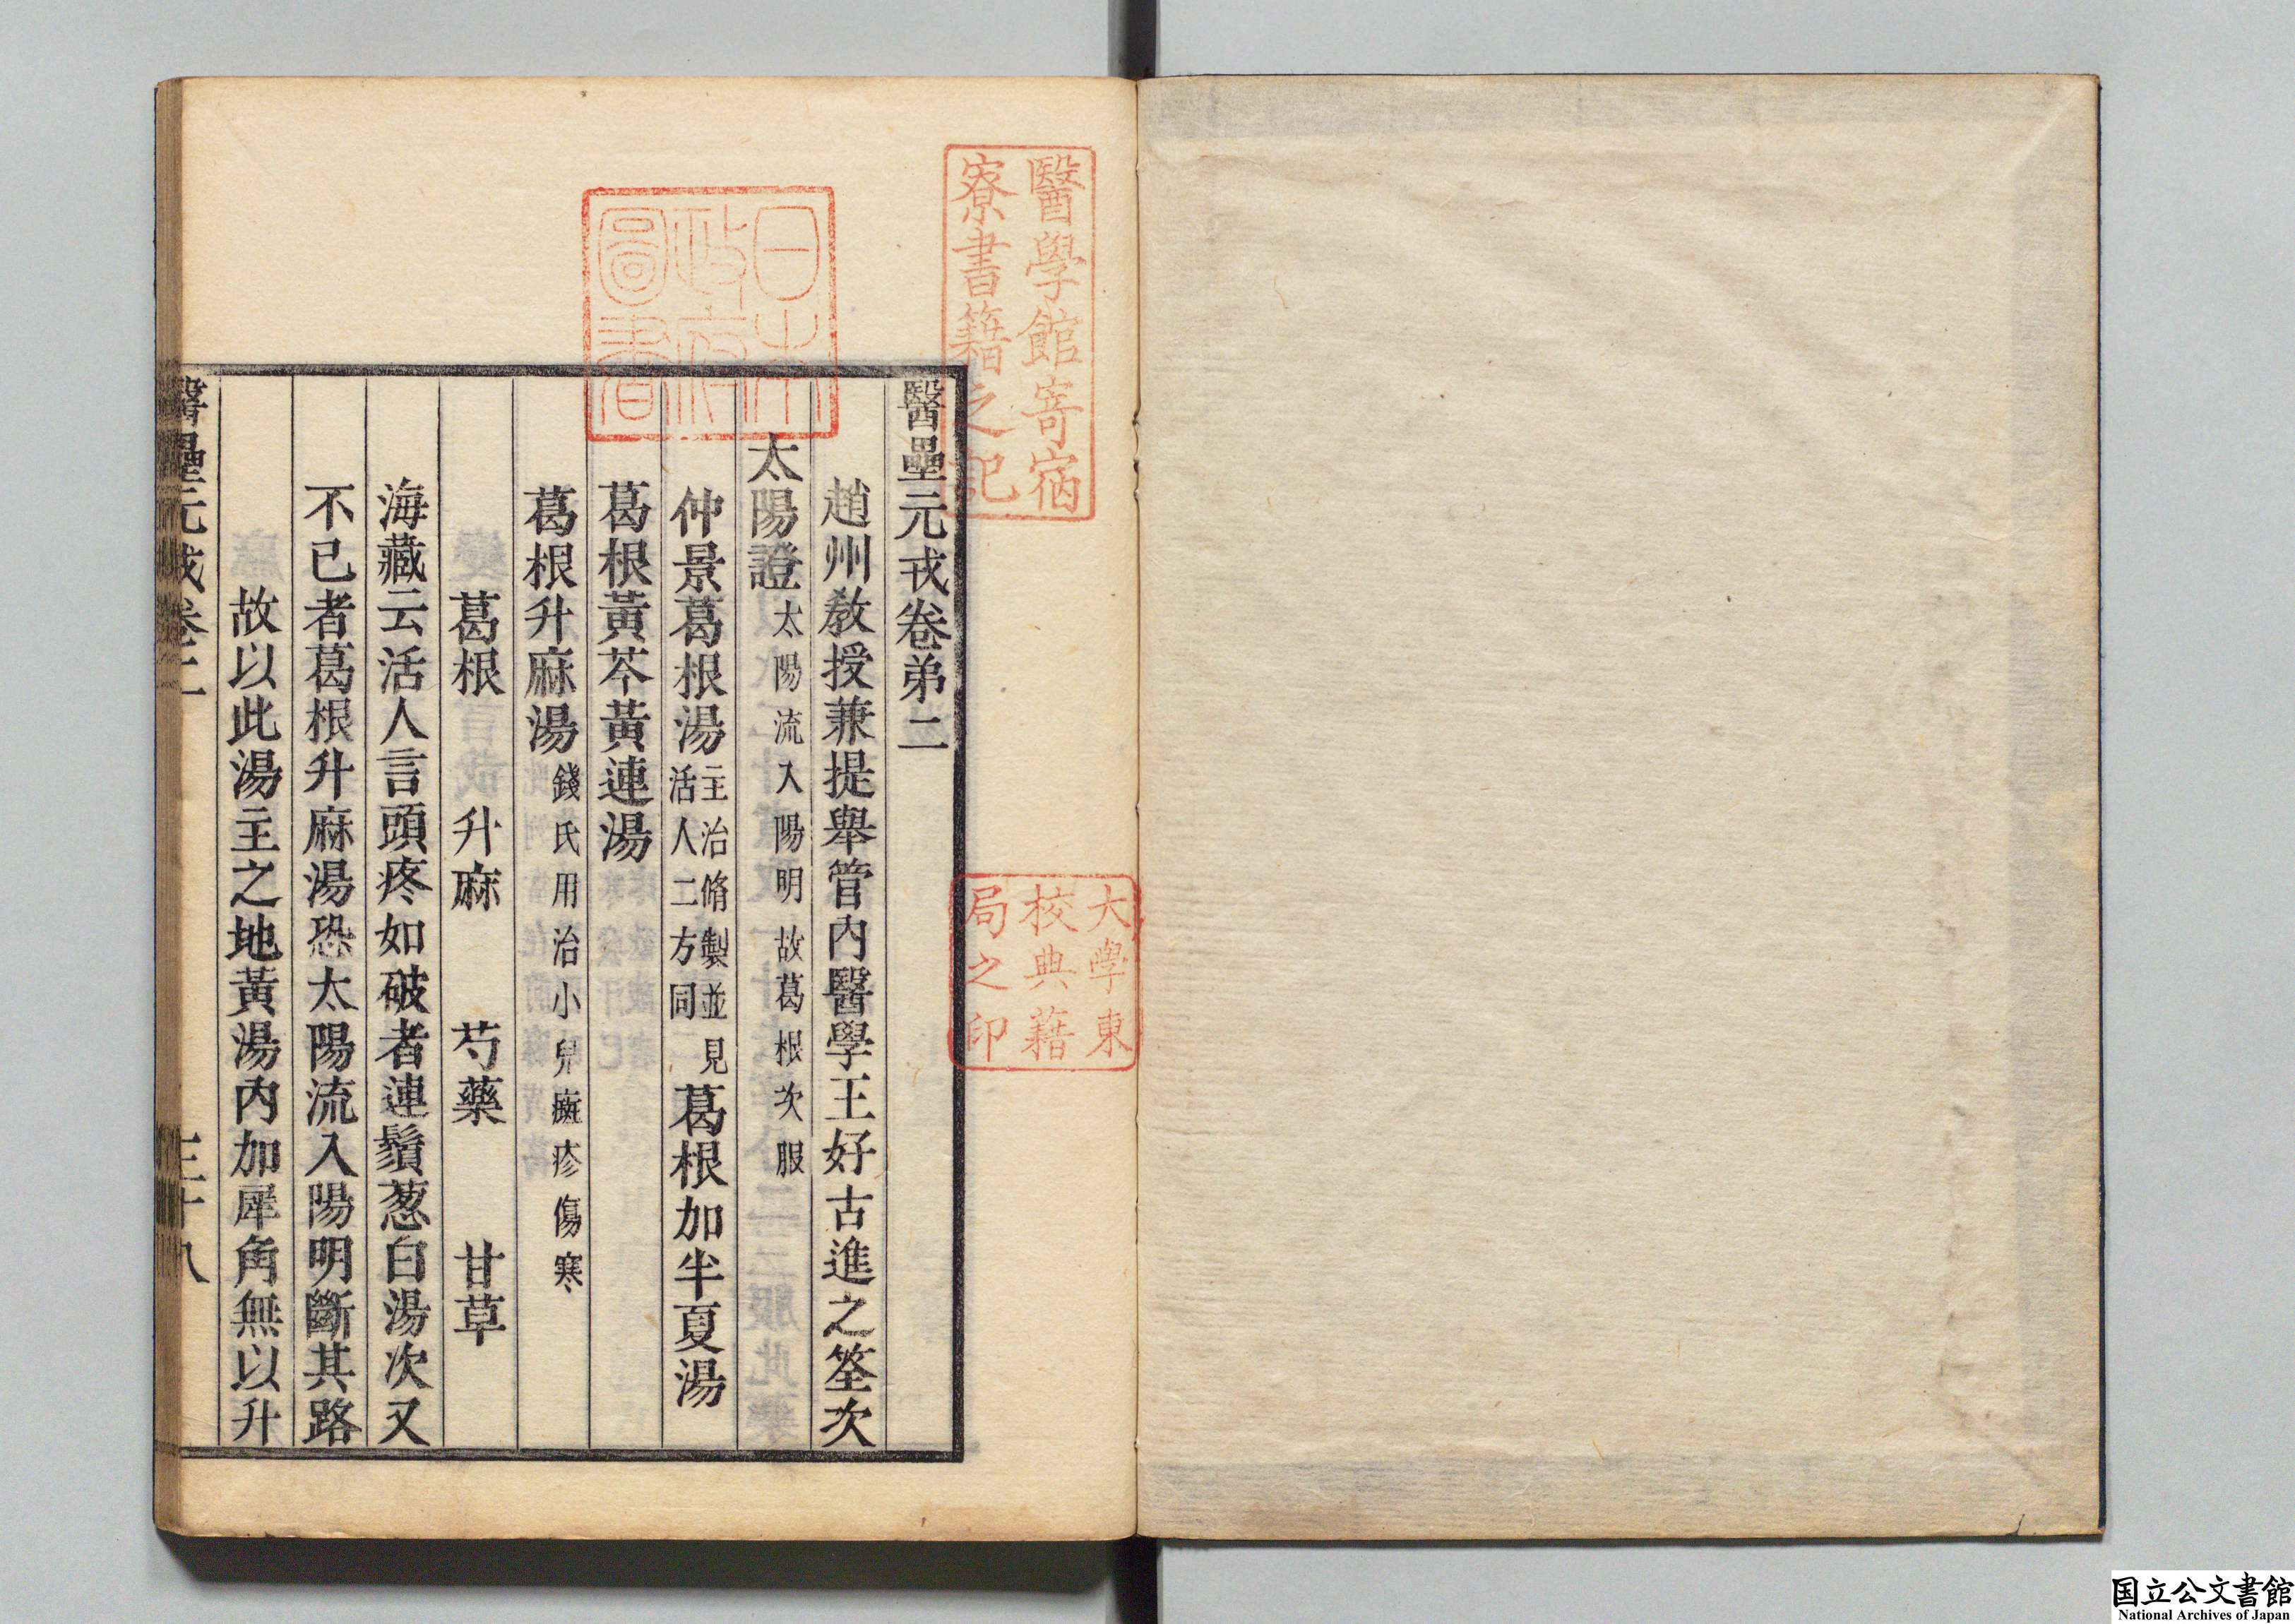 醫學館寄宿
寮書籍之記
日本
政府
圖書
大學東
校典籍
局之印
醫壘元戎卷弟二
趙州教授兼提舉管內醫學王好古進之筌次
太陽證太陽流入陽明故葛根次服
仲景葛根湯主治脩製並見活人二方同葛根加半夏湯
葛根黃芩黃連湯
葛根升麻湯錢氏用治小兒癍疹傷寒
葛根 升麻 芍藥 甘草
海藏云活人言頭疼如破者連鬚葱白湯次又
不已者葛根升麻湯恐太陽流入陽明斷其路
故以此湯主之地黃湯內加犀角無以升
醫壘元戎卷二 三十八
国立公文書館
National Archives of Japan